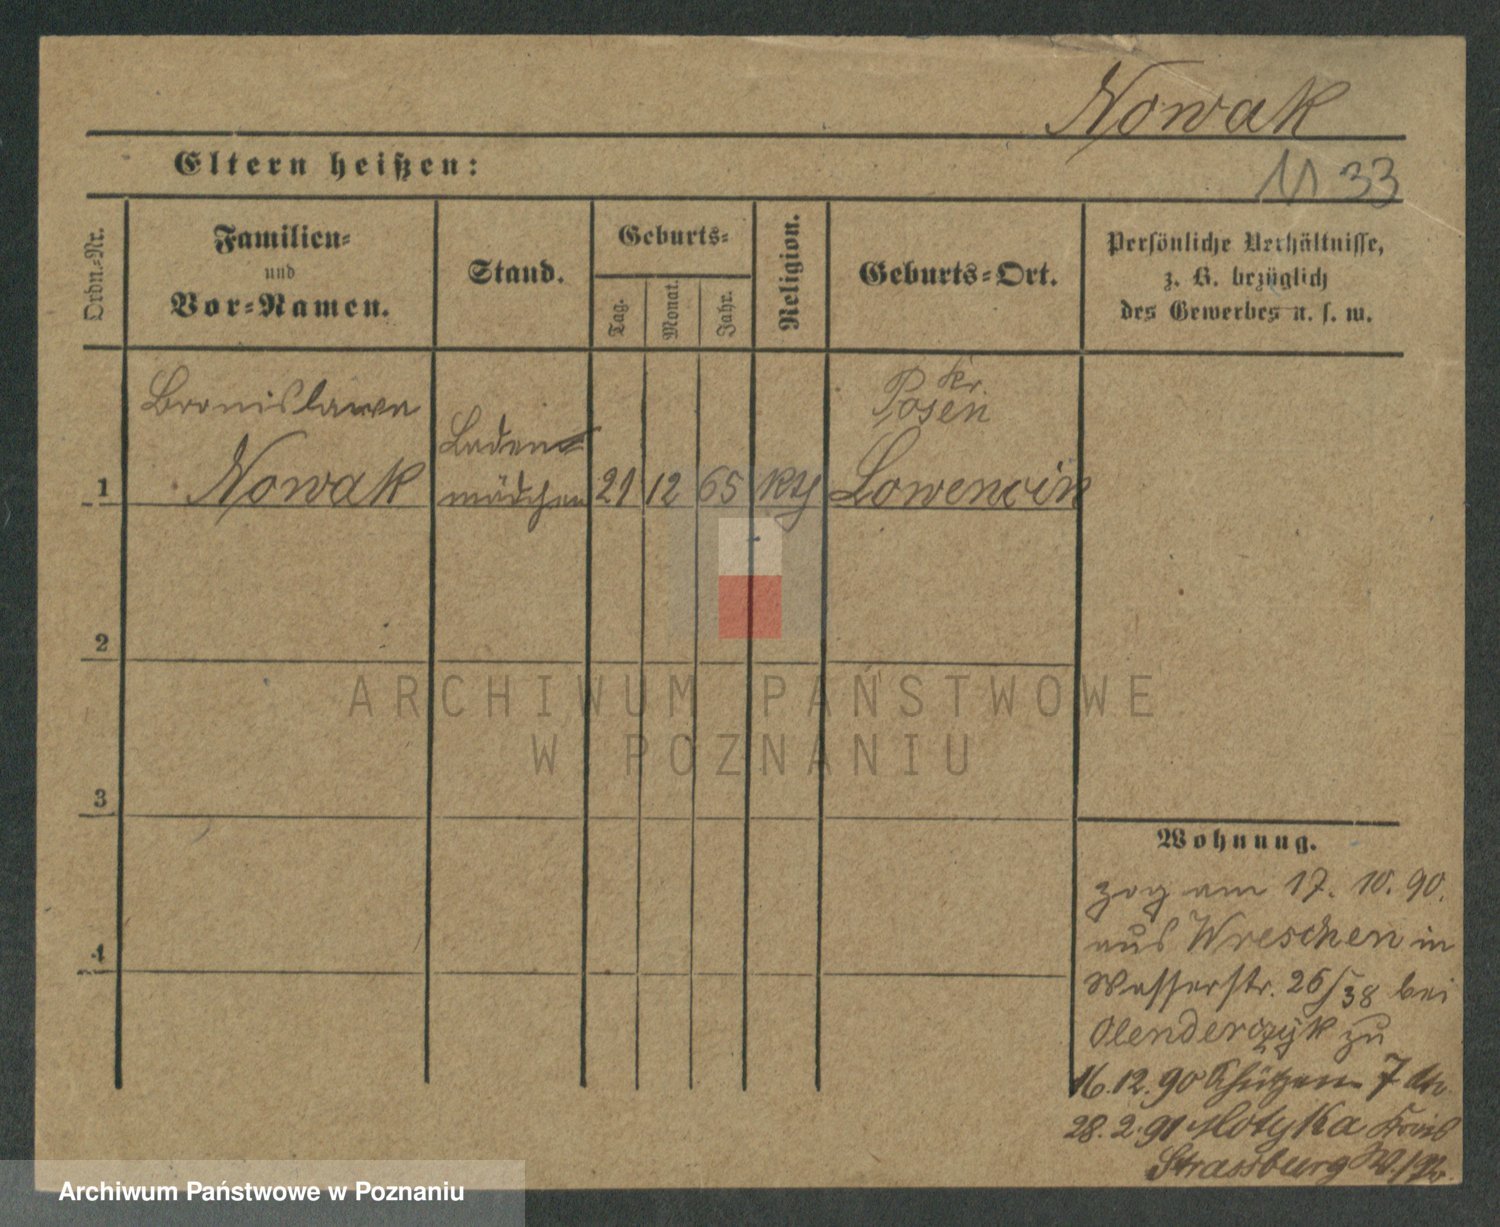 Nowak
Eltern heißen:
33
Ordn.-Nr.
Familien-
und
Vor-Namen.
Stand.
Geburts-
Tag.
Monat.
Jahr.
Religion.
Geburts-Ort.
Persönliche Verhältnisse,
z. B. bezüglich
des Gewerbes u. s. w.
Bronislawa
Nowak
Laden-
mädchen
21
12
65
Kr.
Posen
Lowencin
1
2
3
4
Wohnung.
zog am 17. 10. 90.
aus Wreschen in
Wasserstr. 26/38 bei
Olenderczyk zu
16. 12. 90 Schützen 7
28. 2. 91 Motyka Kreis
Strassburg W./Pr.
ARCHIWUM PAŃSTWOWE
W POZNANIU
Archiwum Państwowe w Poznaniu